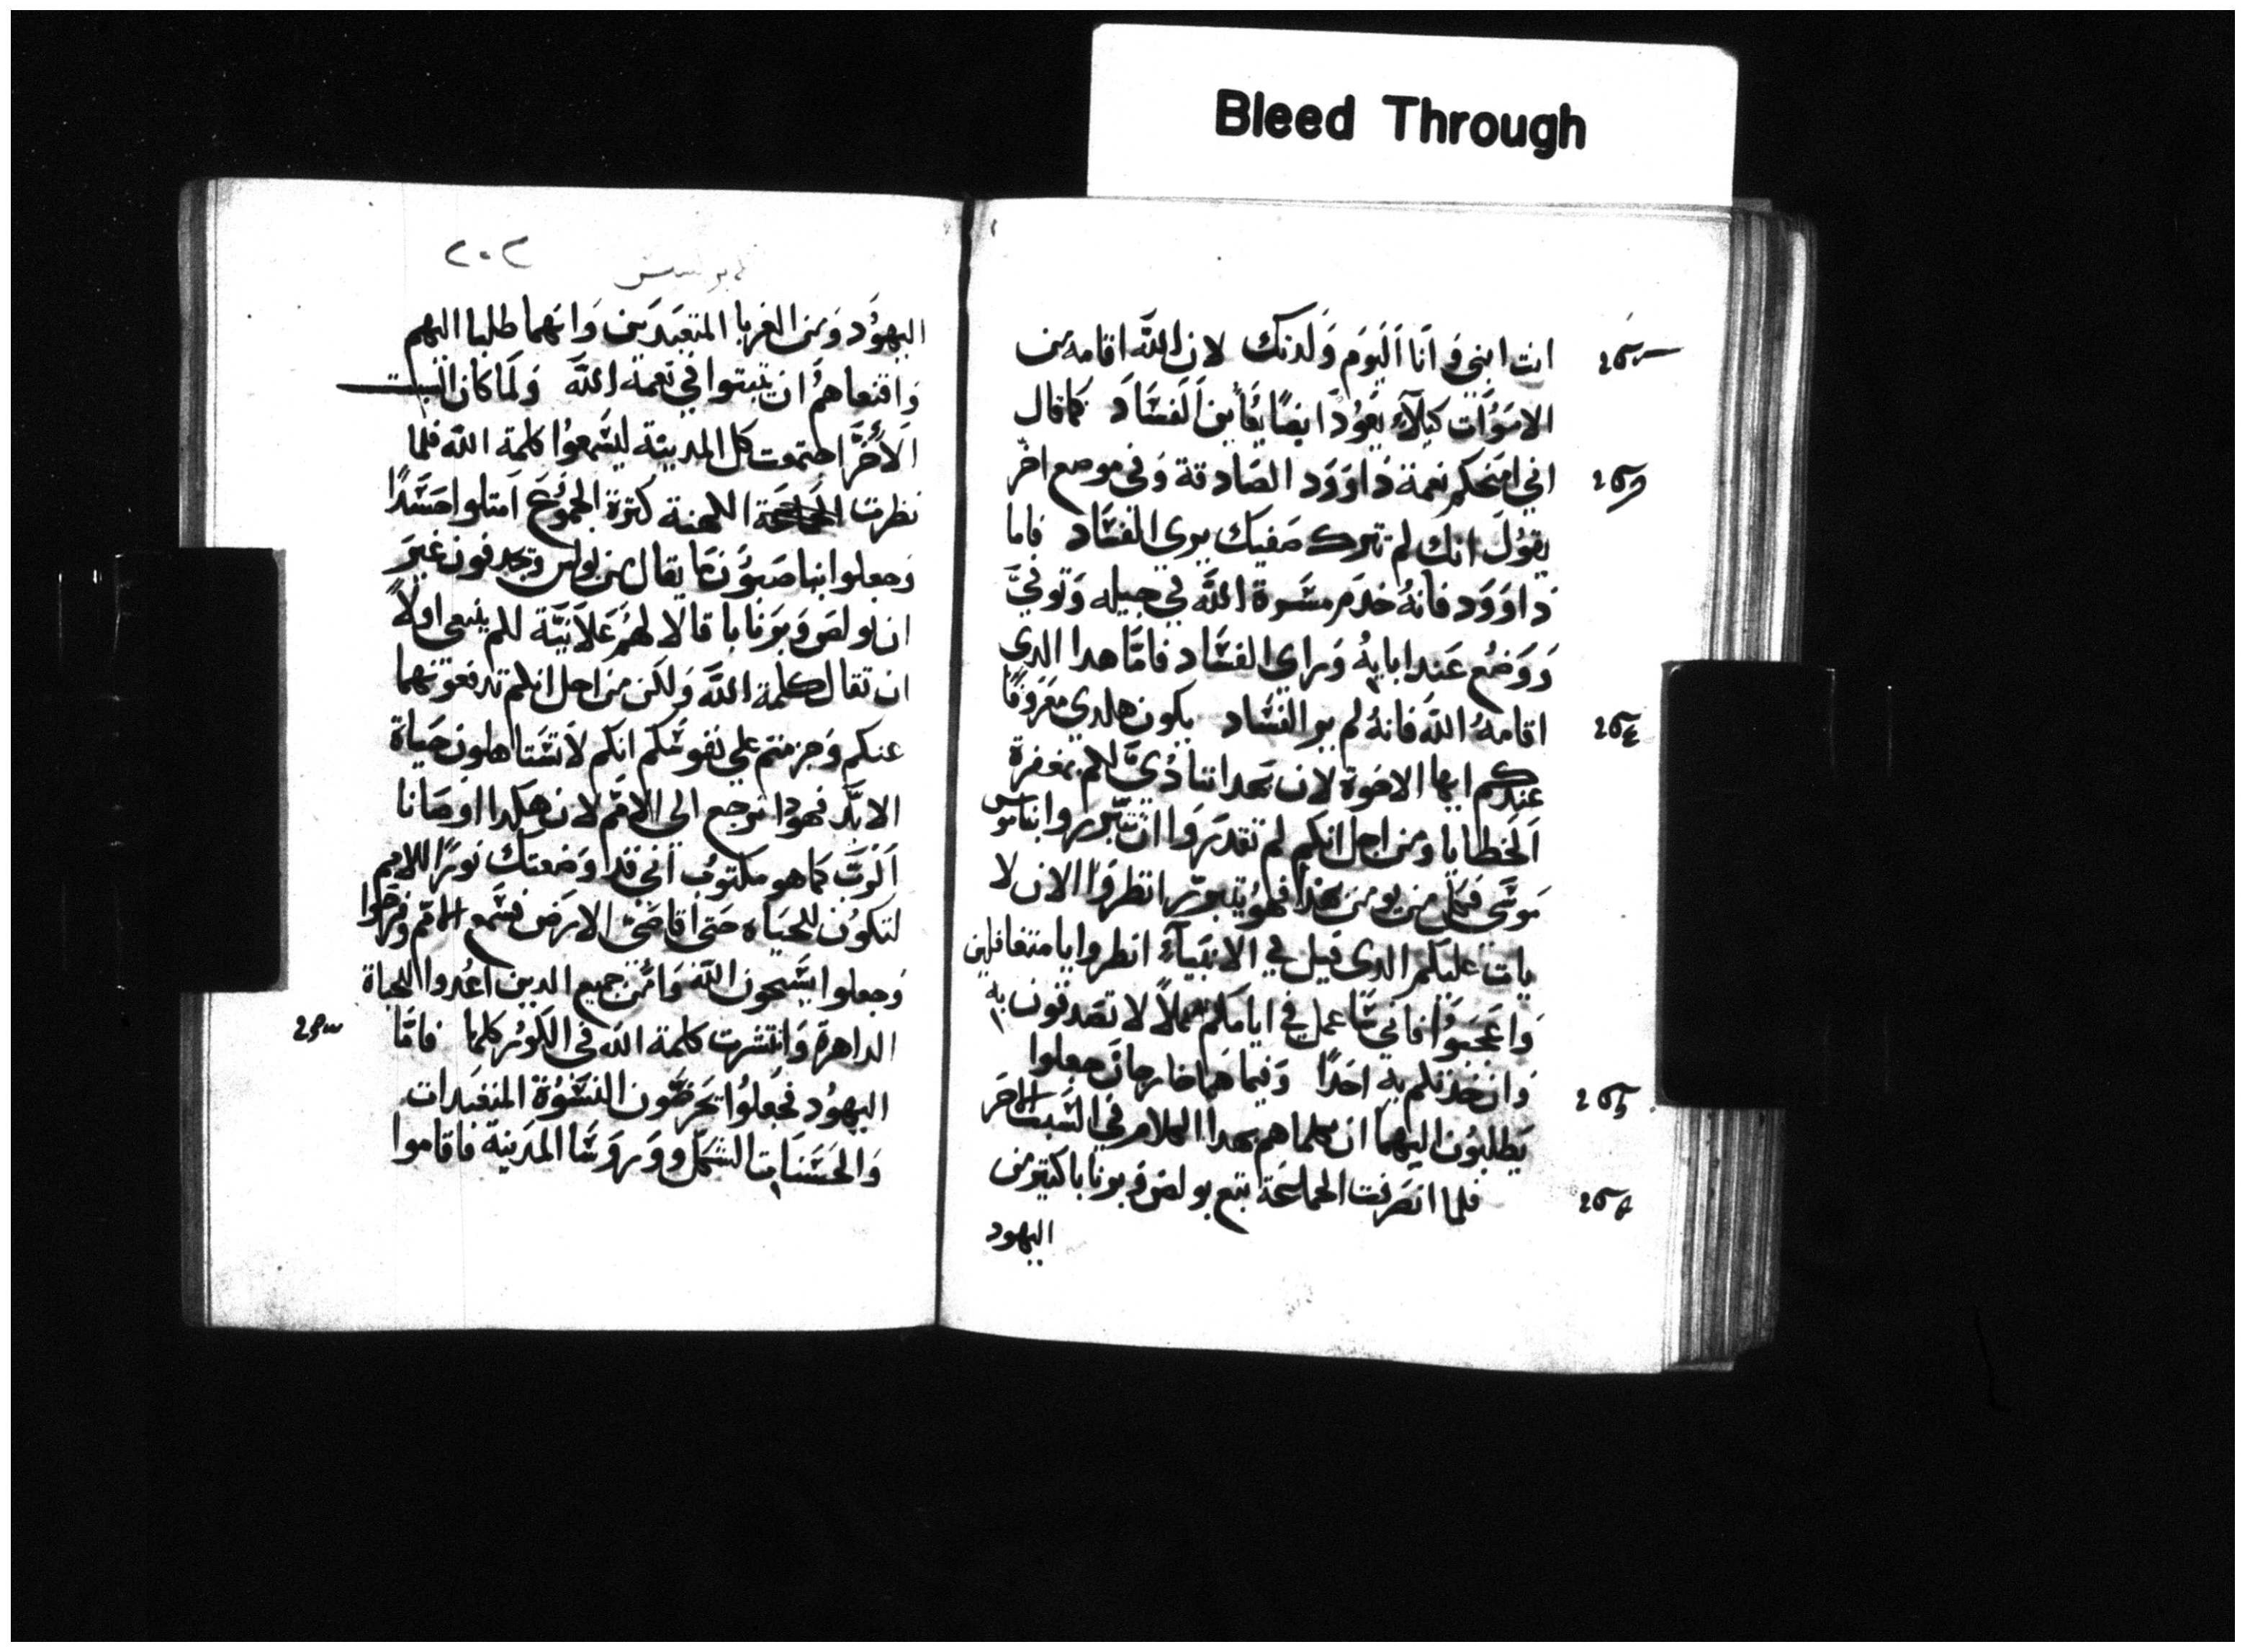 Bleed Through
انت ابني وَانا اَليَوم وَلَدتك لان اللّه اقامه من
الامَوَات كيلا يعَوُد ايضًا يعَاين الفسَاد كما قال
اني امنحكم نعمة دَاوَوَد الصَادقة وَفي موضع اخر
يقوُل انك لم تترك صَفيك يري الفسَاد فاما
دَاوَوَد فانهُ خدَم مسَوة اللّه في جيله وَتوفيَّ
وَوَضُع عَند ابايهُ وَراي الفسَاد فامَّا هدا الدي
اقامهُ اللّه فانهُ لم ير الفسَاد يكون هلدي مَعرَوفًا
عندكم ايها الاخوة لان بهدا تناديَّ لكم بمغفرة
اَلخطايا ومن اجل انكم لم تقدَروَا ان تتبرروا بناموس
مَوسَي فكل من يومَن بهدا فهوُ يتبرر انظروَا الان لا
يات عليَكم الدي قيل في الانبيَآء انظروا يا متغافلين
وَاعَجبوَا فاني سَاعمل في ايامَكم عملاً لا تصَدقون به
وَان خدتكم به احَدًا وَفيما هَما خارجان جعلوا
يَطلبوُن اليهمَا ان يكلماهم بهدا الكلام في السَبت الاخَر
فلما انصَرفت الجماعَة اتبع بولصَ وَبرنابا كتير من
اليهود
٢٠٢
اليهوُد وَمن الغَربا المتعبَدين وَانهما طلبا اليهم
وَاقنعاهمُ ان يثبتوا في نعمة اللّه وَلمَا كان السَبت
الأخَر اجتمعت كل المدينة ليسَمعوُا كلمة اللّه فلما
نظرت الكهنة كترة الجموُعَ امتلوا حسَدًا
وَجعلوا يناصبوُن ما يقال من بولس ويجدفون غيَر
ان بولصَ وَبرَنابا قالا لهمُ عَلانيَّة للم ينبغي اولاً
ان تقال كلمة اللّه وَلكن من اجل انكم تدفعونهما
عنكم وَجزمتم علي نفوسَكم انكم لا تسَتاهلون حَياة
الابَد فهودا نرجع الي الامَم لان هكدا اوصَانا
اَلربَّ كمَا هو مكتوُب اني قد وَضعتك نورًا للامم
لتكوُن للحيَاه حَتي اقاصَي الارَض فسَمع الامَم وَفرَحوا
وَجعلوا يسَبحون اللّه وَامَن جميع الدين اعُدوا للحياة
الداهرة وَانتشرت كلمة اللّه في الكوُر كلها فامَّا
اليهوُد فجَعلوُا يَحرضَّون النسَوُة المتعَبدات
وَالحَسَنات الشكل وَوَروَسَا المَدينة فاقاموا